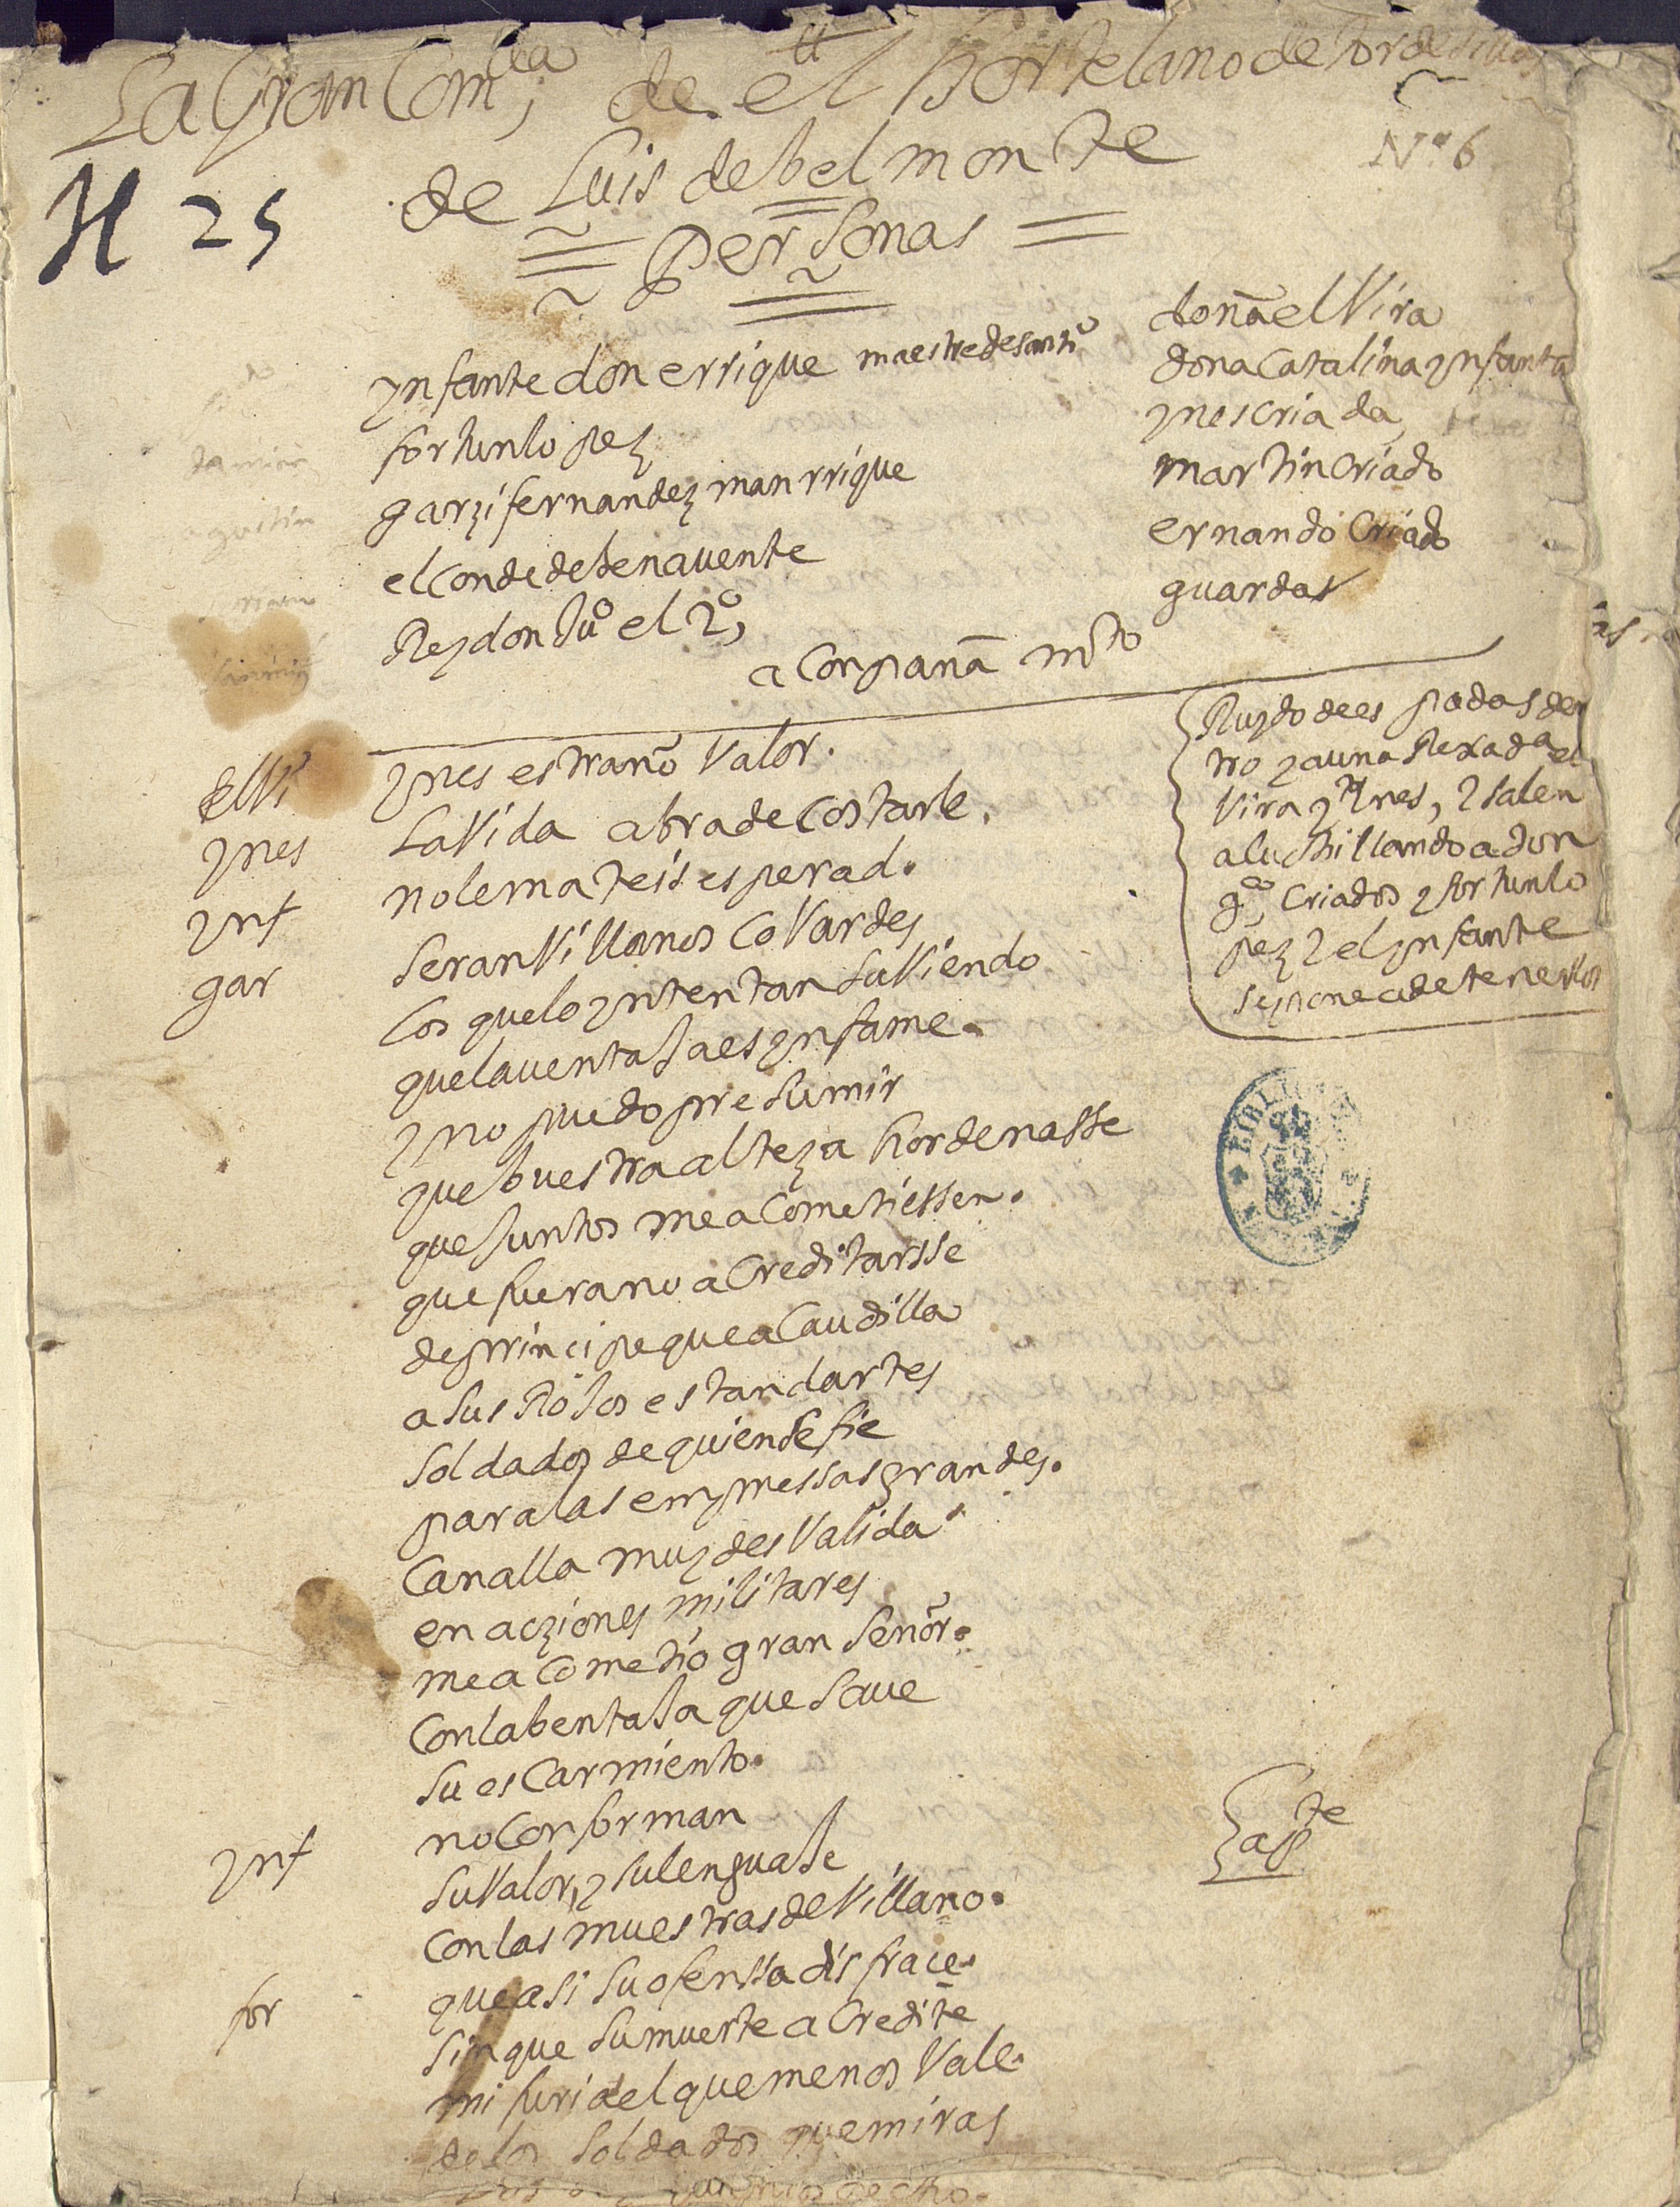 La Gran Comea, de el hortelano de tordesillas
Nº 6
H 25
de Luis de belmonte
Personas
ynfante don errique maestre de santiº
fortun lopez
garzi fernandez manrrique
el conde de benavente
Rey don Juº el 2º,
doña elVira
dona Catalina ynfanta
ynes criada
martin criado
ernando criado
guardas
aconpañamto
Ruydo de espadas den
tro y a una Rexa da el
Vira y ynes, y salen
acuchillando a don
ga, criados y fortun lo
pez y el ynfante
se pone a detenerlos
elVi ynes estraño Valor.
ynes La Vida abra de costarle.
ynf no le mateis esperad.
gar Seran Villanos coVardes
los que lo yntentan suViendo
que la ventaJa es ynfame.
y no puedo presumir
que buestra alteza hordenasse
que Juntos me acometiessen.
que fuera no acreditarsse
de principe que acaudilla
a sus RoJos estandartes
soldados de quien se fie
para las empressas grandes.
Canalla muy desValida
en acziones militares
me acometio gran Señor.
Con la bentaJa que save
su escarmiento.
ynf no conforman
su Valor, y su lenguaJe
con las muestras de Villano. apte
for que asi su ofenssa disfrace.
sin que su muerte acredite
mi furia el que menos Vale.
de los soldados que miras